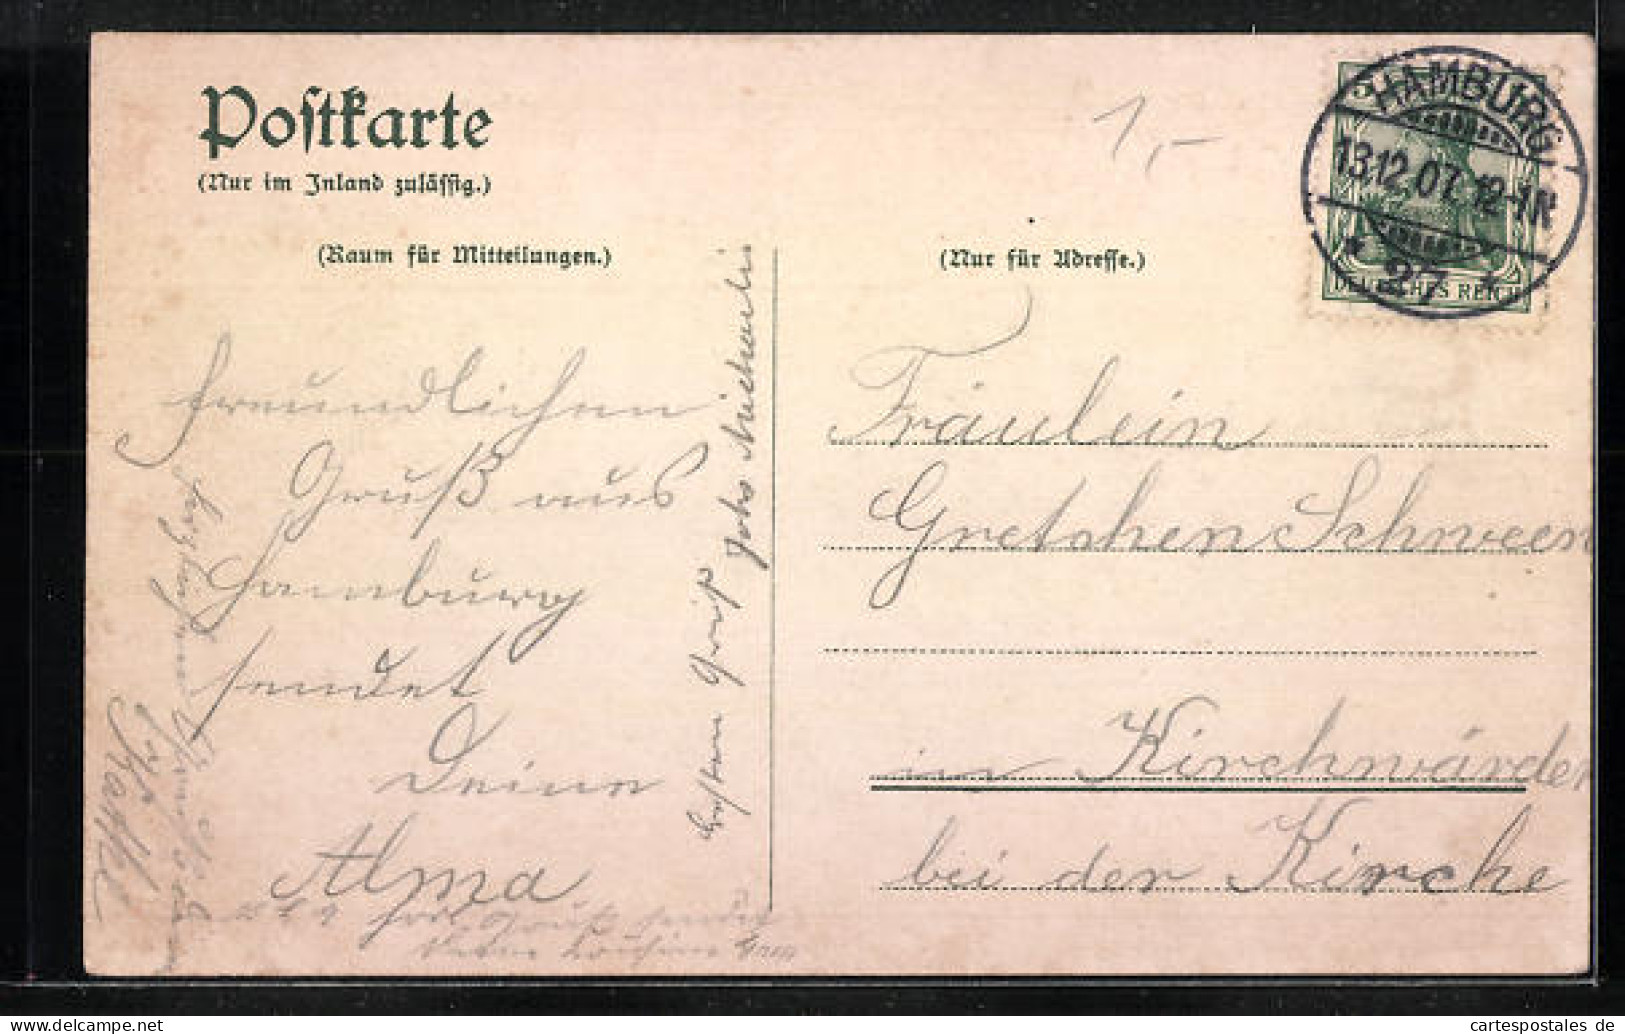 Postkarte
(Nur im Inland zulässig.)
(Raum für Mitteilungen.)
(Nur für Adresse.)
1,-
HAMBURG
13.12.07. 12-1 N
* 27 *
DEUTSCHES REICH
Freundlichen
Gruß aus
Hamburg
sendet
Deine
Alma
Gruß sendet
Gruß Johs
Fräulein
Gretchen Schween
in Kirchwärder
bei der Kirche
cartespostales de